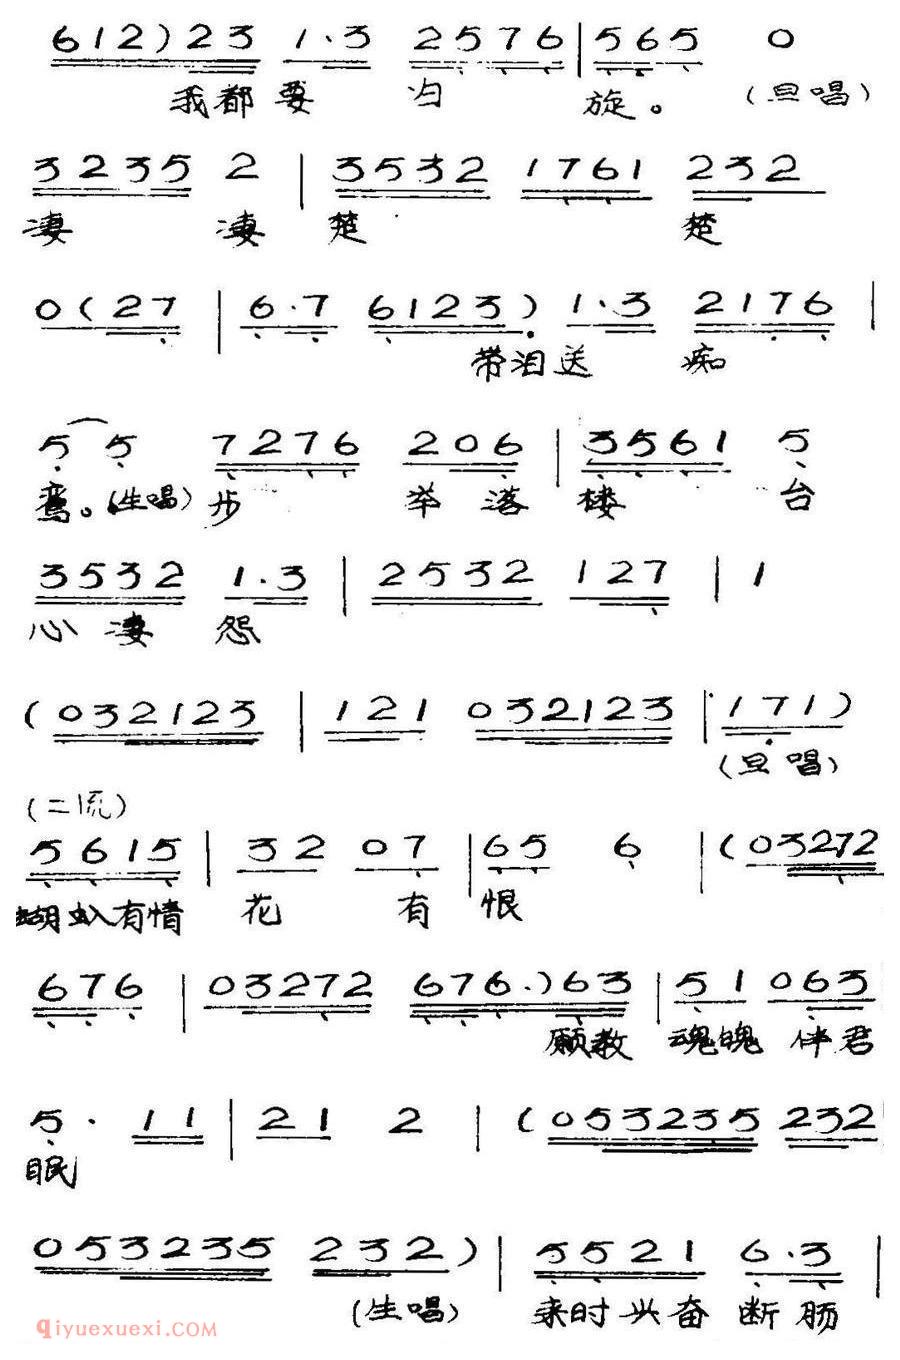 612)23 1.3 2576 | 565 0
我都要 归 旋。 (旦唱)
3235 2 | 3532 1761 232
凄 凄 楚 楚
0(27 | 6.7 6123) 1.3 2176 |
带泪送 痴
5 5 7276 206 | 3561 5
鸾。(生唱)步 举 落 楼 台
3532 1.3 | 2532 127 | 1
心 凄 怨
(032123 | 121 032123 | 171)
(旦唱)
(二流)
5615 | 32 07 | 65 6 | (03272
蝴虯有情 花 有 恨
676 | 03272 676.)63 | 51 063
愿教 魂魄 伴君
5. 11 | 21 2 | (053235 232
眠
053235 232) | 5521 6.3 |
(生唱) 来时兴奋 断肠
qiyuexuexi.com